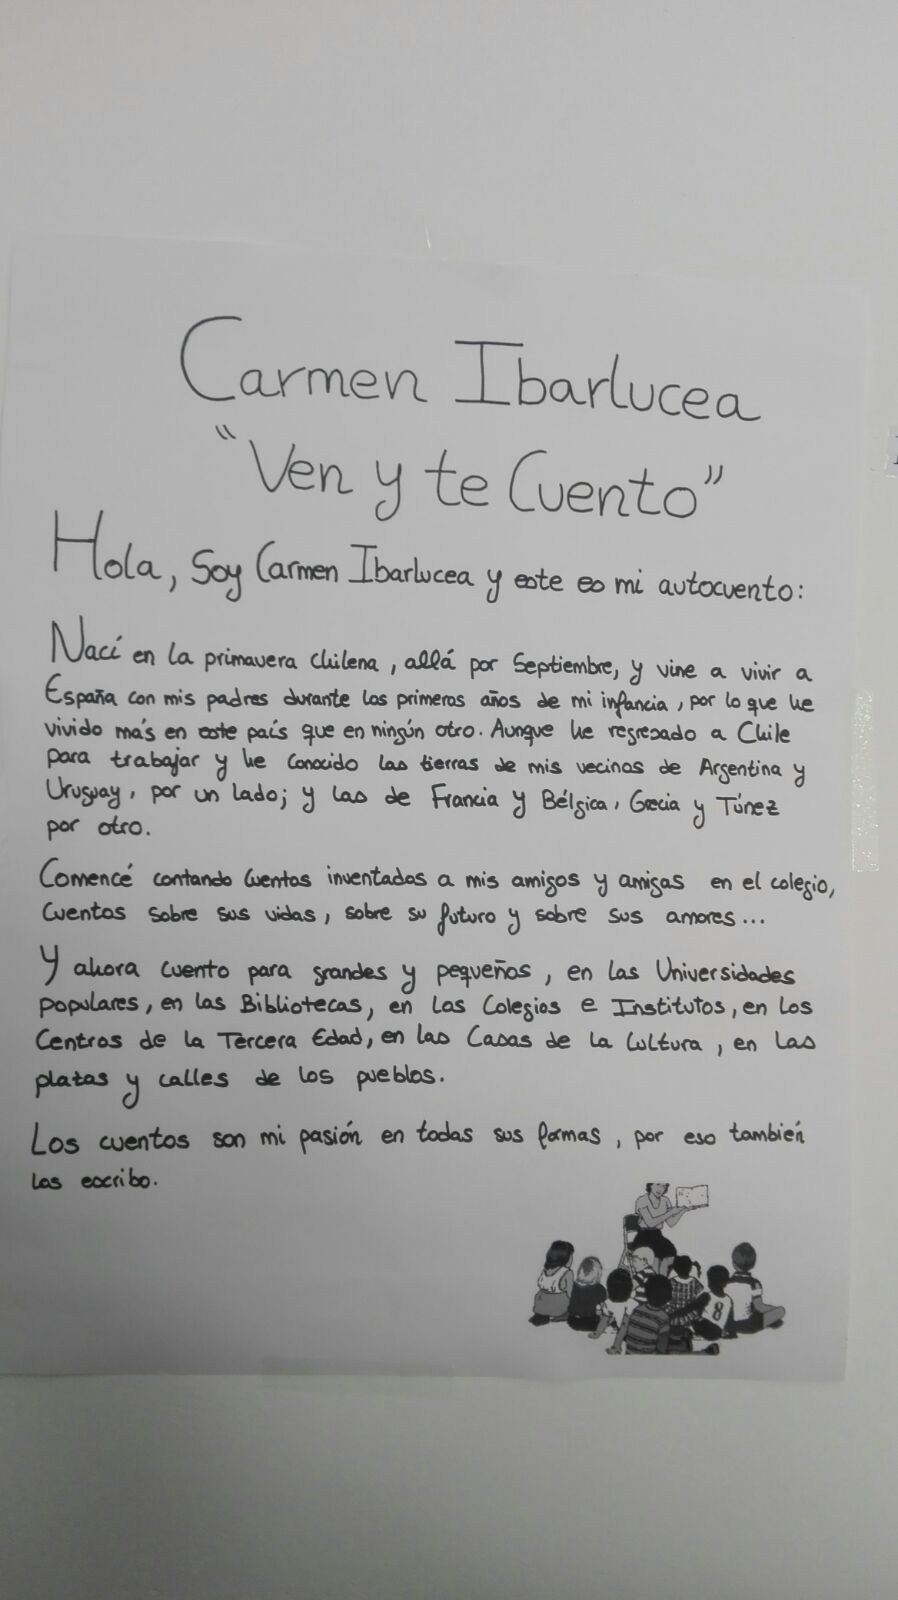 Carmen Ibarlucea
"Ven y te Cuento"
Hola, Soy Carmen Ibarlucea y este es mi autocuento:
Nací en la primavera chilena, allá por Septiembre, y vine a vivir a
España con mis padres durante los primeros años de mi infancia, por lo que he
vivido más en este país que en ningún otro. Aunque he regresado a Chile
para trabajar y he conocido las tierras de mis vecinos de Argentina y
Uruguay, por un lado; y las de Francia y Bélgica, Grecia y Túnez
por otro.
Comencé contando cuentos inventados a mis amigos y amigas en el colegio,
cuentos sobre sus vidas, sobre su futuro y sobre sus amores...
Y ahora cuento para grandes y pequeños, en las Universidades
populares, en las Bibliotecas, en los Colegios e Institutos, en los
Centros de la Tercera Edad, en las Casas de la Cultura, en las
platas y calles de los pueblos.
Los cuentos son mi pasión en todas sus formas, por eso también
los escribo.
8